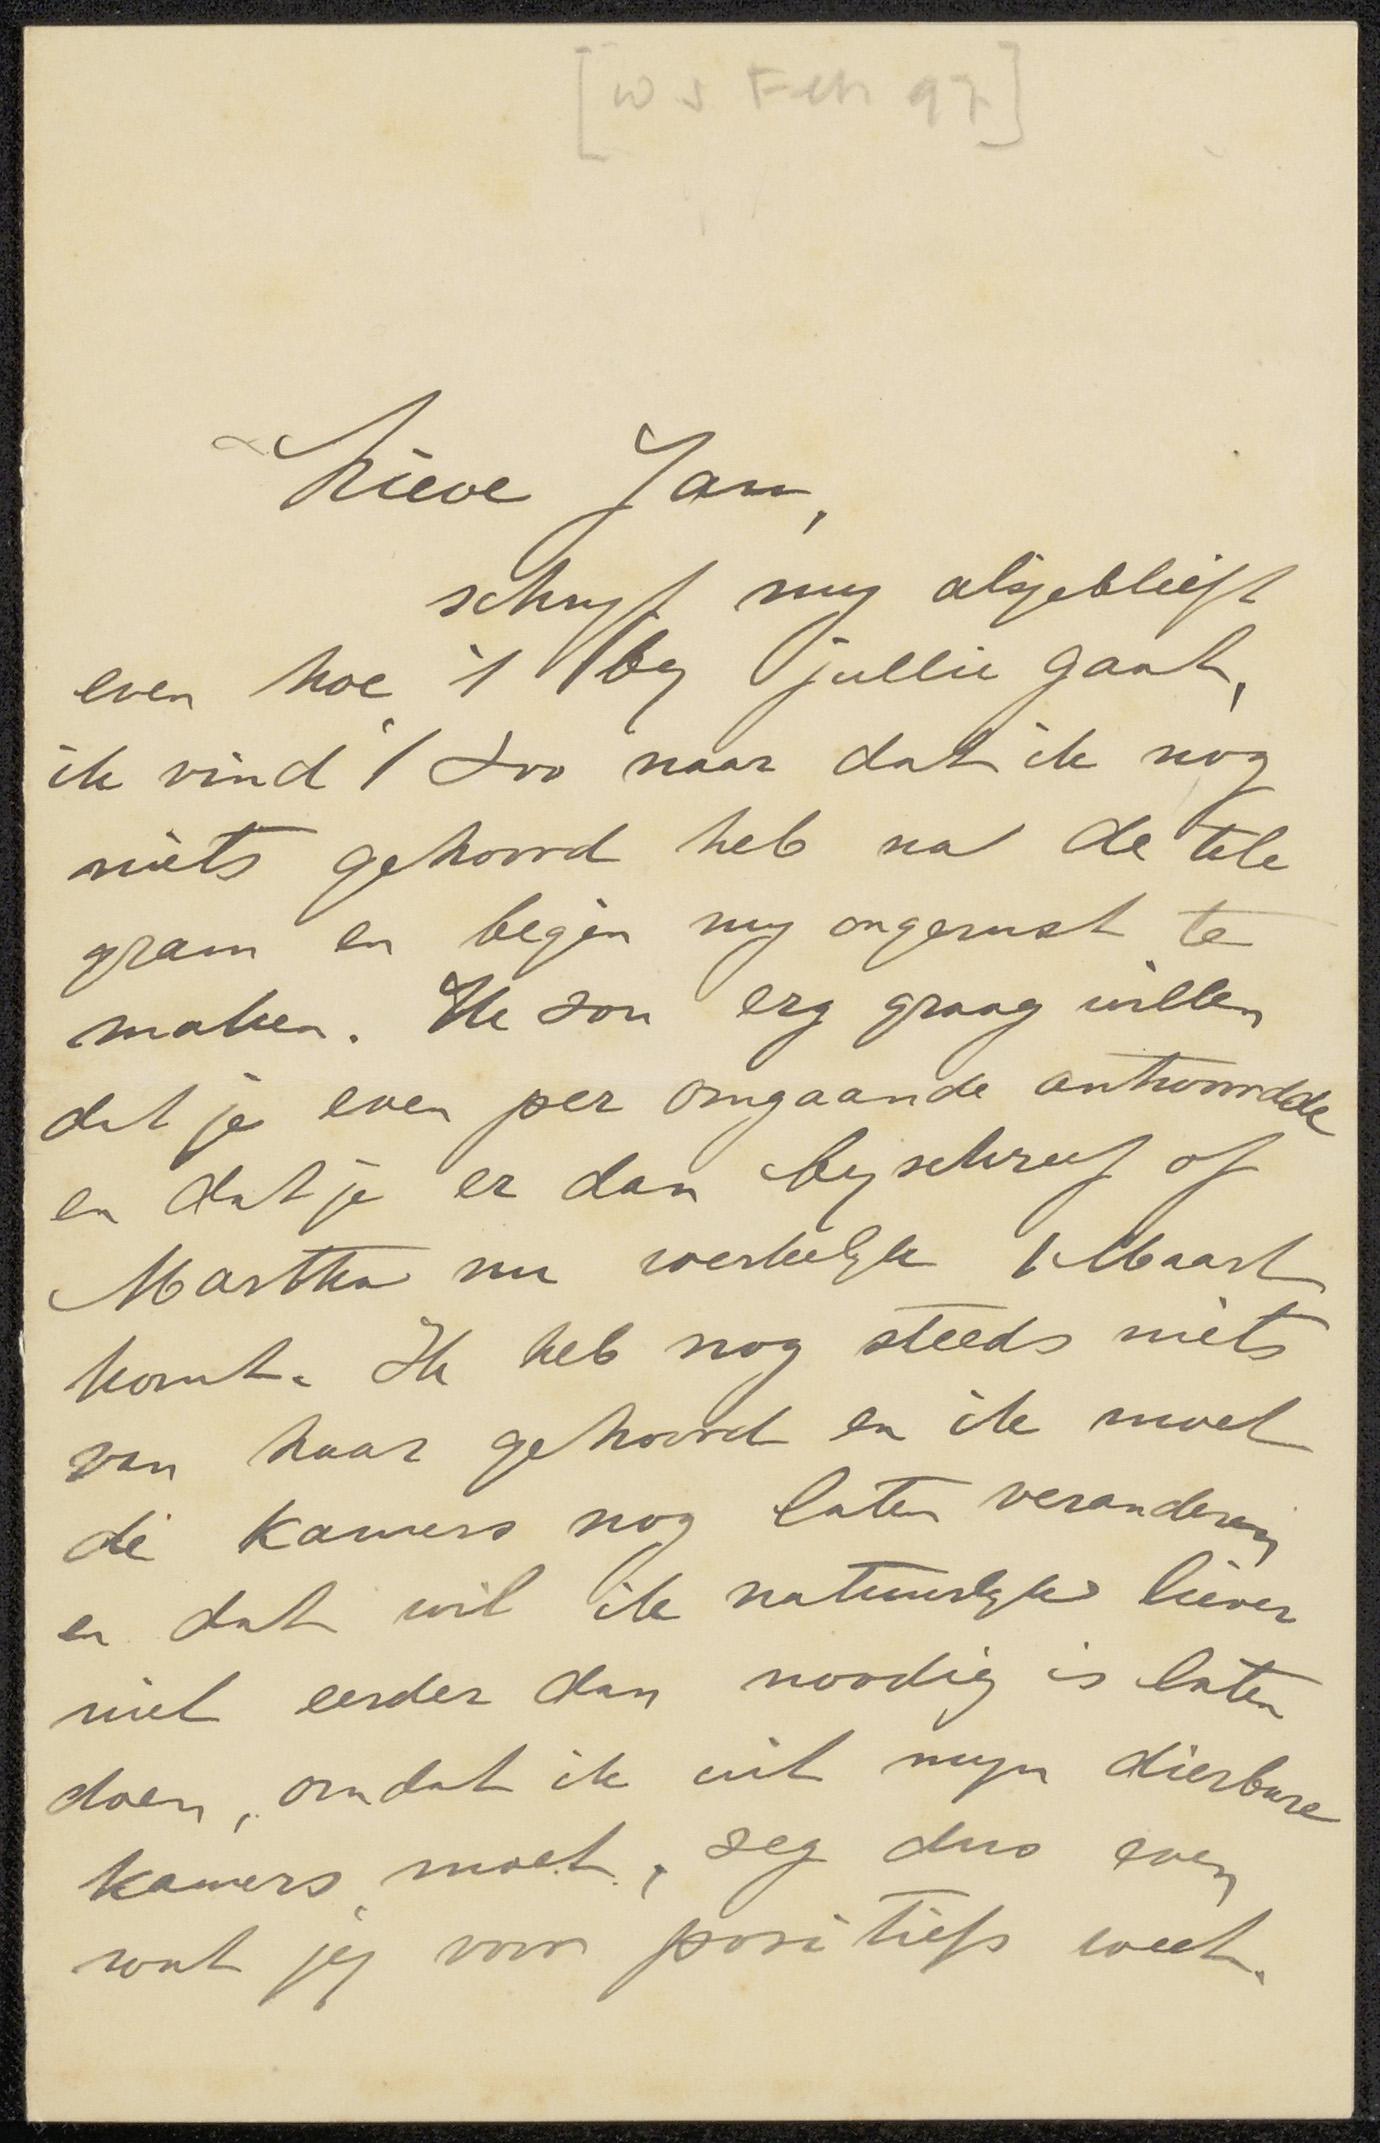 [ws Feb 97]
Lieve Jan,
schryf my alsjeblieft
even hoe 't by jullie gaat,
ik vind 't zoo naar dat ik nog
niets gehoord heb na de tele
gram en begin my ongerust te
maken. Ik zou erg graag willen
dat je even per omgaande antwoordde
en dat je er dan byschreef of
Martha nu werkelyk 1 Maart
komt. Ik heb nog steeds niets
van haar gehoord en ik moet
de kamers nog laten veranderen
en dat wil ik natuurlyk liever
niet eerder dan noodig is laten
doen, omdat ik uit myn dierbare
kamers moet, zeg dus even
wat jij voor positiefs weet.